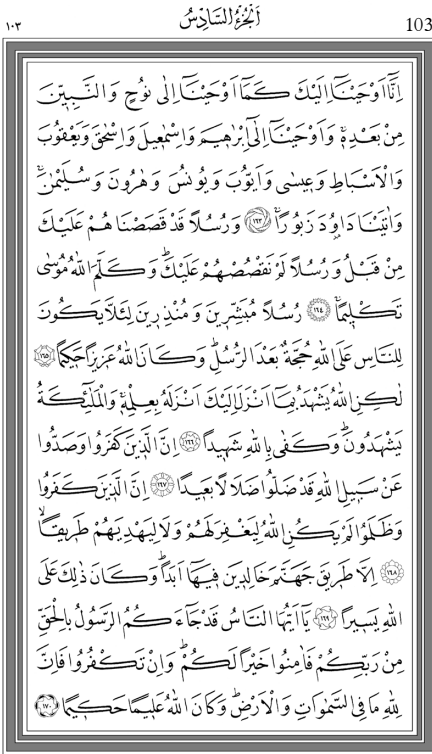 ١٠٣ اَلْجُزْءُ السَّادِسُ 103
اِنَّٓا اَوْحَيْنَٓا اِلَيْكَ كَمَٓا اَوْحَيْنَٓا اِلٰى نُوحٍ وَالنَّبِيّٖنَ
مِنْ بَعْدِهٖۚ وَاَوْحَيْنَٓا اِلٰٓى اِبْرٰهٖيمَ وَاِسْمٰعٖيلَ وَاِسْحٰقَ وَيَعْقُوبَ
وَالْاَسْبَاطِ وَعٖيسٰى وَاَيُّوبَ وَيُونُسَ وَهٰرُونَ وَسُلَيْمٰنَۚ
وَاٰتَيْنَا دَاوُ۫دَ زَبُوراًۚ ﴿١٦٣﴾ وَرُسُلاً قَدْ قَصَصْنَاهُمْ عَلَيْكَ
مِنْ قَبْلُ وَرُسُلاً لَمْ نَقْصُصْهُمْ عَلَيْكَۜ وَكَلَّمَ اللّٰهُ مُوسٰى
تَكْلٖيماًۚ ﴿١٦٤﴾ رُسُلاً مُبَشِّرٖينَ وَمُنْذِرٖينَ لِئَلَّا يَكُونَ
لِلنَّاسِ عَلَى اللّٰهِ حُجَّةٌ بَعْدَ الرُّسُلِۜ وَكَانَ اللّٰهُ عَزٖيزاً حَكٖيماً ﴿١٦٥﴾
لٰكِنِ اللّٰهُ يَشْهَدُ بِمَٓا اَنْزَلَ اِلَيْكَ اَنْزَلَهُ بِعِلْمِهٖۚ وَالْمَلٰٓئِكَةُ
يَشْهَدُونَۜ وَكَفٰى بِاللّٰهِ شَهٖيداً ﴿١٦٦﴾ اِنَّ الَّذٖينَ كَفَرُوا وَصَدُّوا
عَنْ سَبٖيلِ اللّٰهِ قَدْ ضَلُّوا ضَلَالاً بَعٖيداً ﴿١٦٧﴾ اِنَّ الَّذٖينَ كَفَرُوا
وَظَلَمُوا لَمْ يَكُنِ اللّٰهُ لِيَغْفِرَ لَهُمْ وَلَا لِيَهْدِيَهُمْ طَرٖيقاًۙ
﴿١٦٨﴾ اِلَّا طَرٖيقَ جَهَنَّمَ خَالِدٖينَ فٖيهَٓا اَبَداًۜ وَكَانَ ذٰلِكَ عَلَى
اللّٰهِ يَسٖيراً ﴿١٦٩﴾ يَٓا اَيُّهَا النَّاسُ قَدْ جَٓاءَكُمُ الرَّسُولُ بِالْحَقِّ
مِنْ رَبِّكُمْ فَاٰمِنُوا خَيْراً لَكُمْۜ وَاِنْ تَكْفُرُوا فَاِنَّ
لِلّٰهِ مَا فِي السَّمٰوَاتِ وَالْاَرْضِۜ وَكَانَ اللّٰهُ عَلٖيماً حَكٖيماً ﴿١٧٠﴾